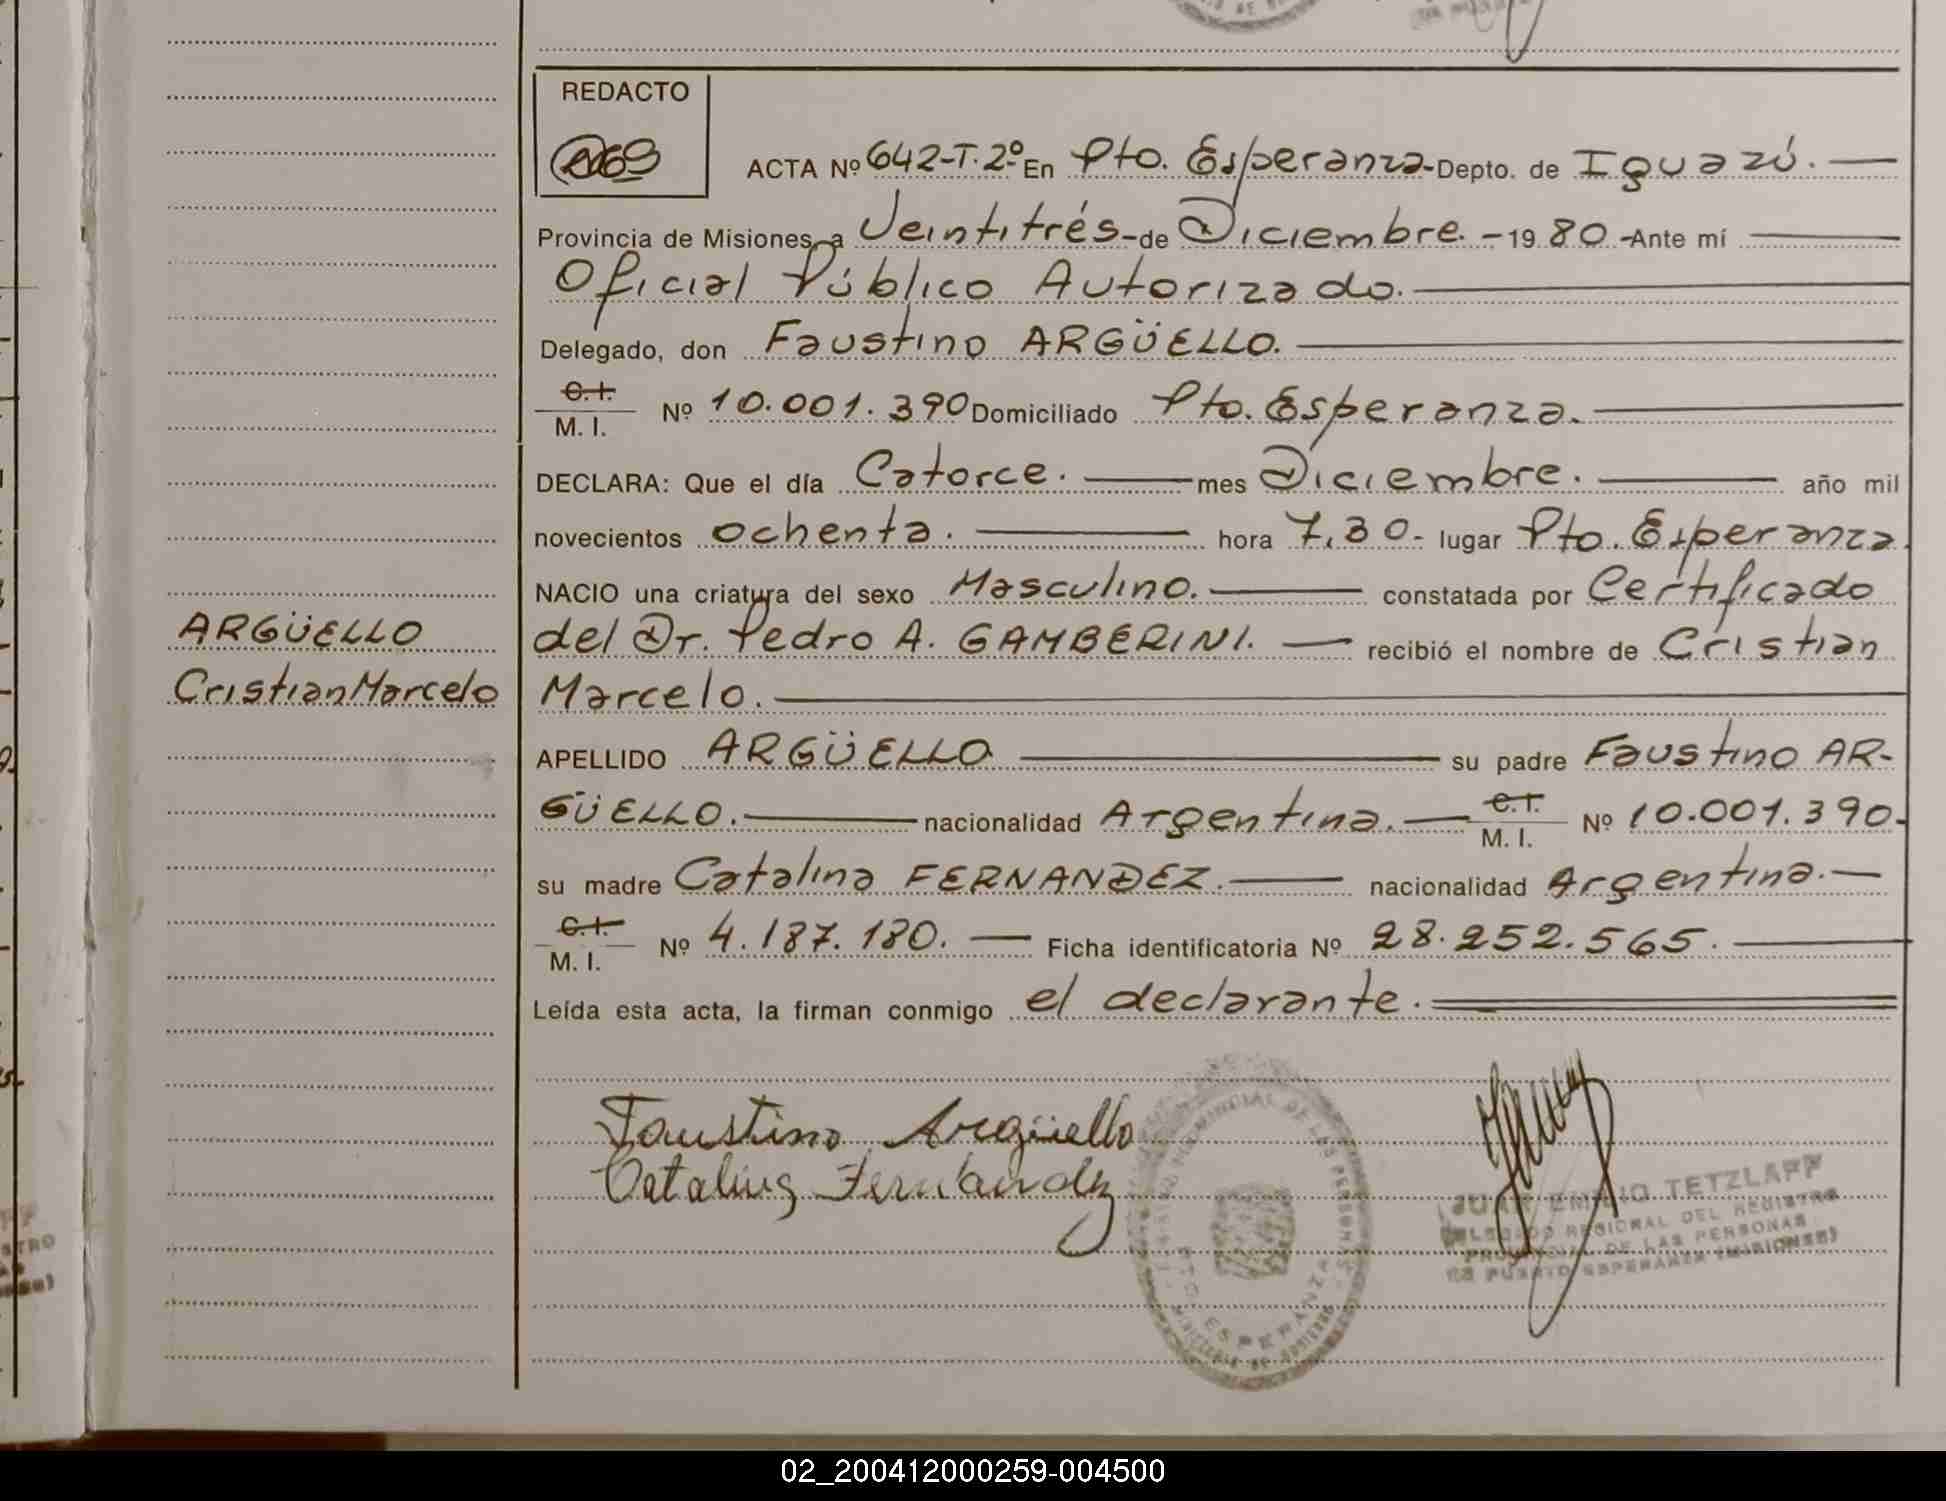 REDACTO
ACTA Nº 642-T.2º En Pto. Esperanza - Depto. de Iguazú.
Provincia de Misiones, a Veintitrés - de Diciembre. - 19 80 - Ante mí
Oficial Público Autorizado.
Delegado, don Faustino ARGÜELLO.
C.I.
M. I. Nº 10.001.390 Domiciliado Pto. Esperanza.
DECLARA: Que el día Catorce. mes Diciembre. año mil
novecientos ochenta. hora 7,30- lugar Pto. Esperanza
NACIO una criatura del sexo Masculino. constatada por Certificado
ARGÜELLO
del Dr. Pedro A. GAMBERINI. recibió el nombre de Cristian
Cristian Marcelo
Marcelo.
APELLIDO ARGÜELLO su padre Faustino AR-
GÜELLO. nacionalidad Argentina. C.I. M. I. Nº 10.001.390.
su madre Catalina FERNANDEZ. nacionalidad Argentina.
C.I.
M. I. Nº 4.187.180. Ficha identificatoria Nº 28.252.565.
Leída esta acta, la firman conmigo el declarante.
Faustino Argüello
Catalina Fernandez
JUAN EMILIO TETZLAFF
DELEGADO REGIONAL DEL REGISTRO
PROVINCIAL DE LAS PERSONAS
PUERTO ESPERANZA (MISIONES)
PTO. ESPERANZA
02_200412000259-004500